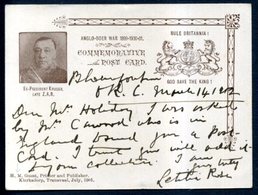 ANGLO-BOER WAR 1899-1900-01.
RULE BRITANNIA!
COMMEMORATIVE
POST CARD.
GOD SAVE THE KING!
EX-PRESIDENT KRUGER,
LATE Z.A.R.
Bloemfontein
O. R. C. 14, 1902
Dear Mr Holiday I was asked
by Mrs Cawood who is in
England to send you a Post-
Card. I trust you will add it
to your collection. I am
yours truly
Lettie
H. M. Guest, Printer and Publisher,
Klerksdorp, Transvaal, July, 1901.